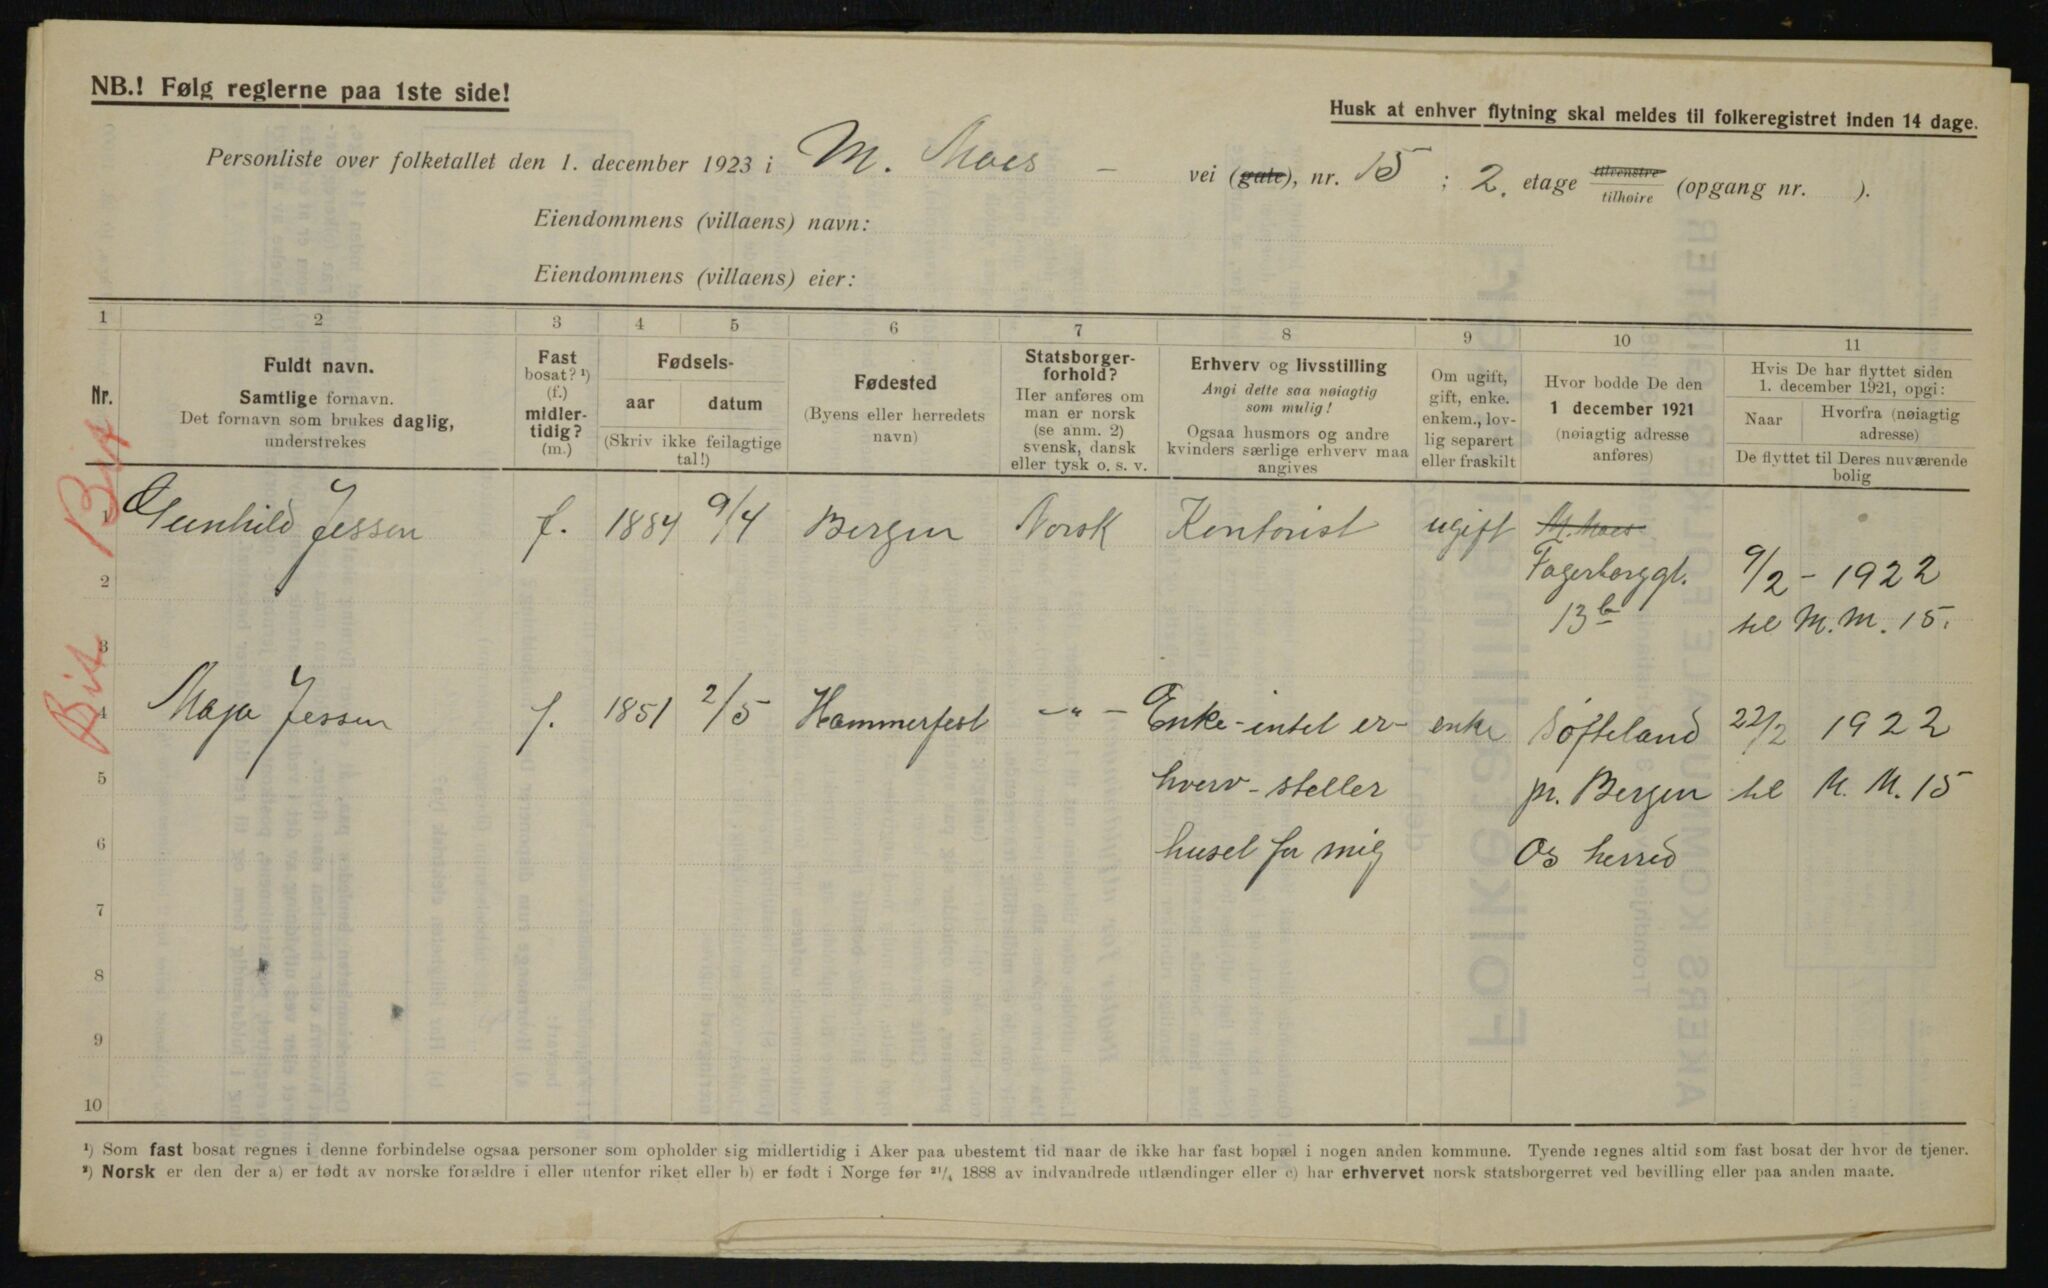 NB.! Følg reglerne paa 1ste side!
Husk at enhver flytning skal meldes til folkeregistret inden 14 dage.
Personliste over folketallet den 1. december 1923 i M. Moes – vei (gate), nr. 15 ; 2. etage tilvenstre
tilhøire (opgang nr. ).
Eiendommens (villaens) navn:
Eiendommens (villaens) eier:
1 2 3 4 5 6 7 8 9 10 11
Nr.
Fuldt navn.
Samtlige fornavn.
Det fornavn som brukes daglig,
understrekes
Fast
bosat? ¹)
(f.)
midler-
tidig?
(m.)
Fødsels-
aar datum
(Skriv ikke feilagtige
tal!)
Fødested
(Byens eller herredets
navn)
Statsborger-
forhold?
Her anføres om
man er norsk
(se anm. 2)
svensk, dansk
eller tysk o. s. v.
Erhverv og livsstilling
Angi dette saa nøiagtig
som mulig!
Ogsaa husmors og andre
kvinders særlige erhverv maa
angives
Om ugift,
gift, enke.
enkem., lov-
lig separert
eller fraskilt
Hvor bodde De den
1 december 1921
(nøiagtig adresse
anføres)
Hvis De har flyttet siden
1. december 1921, opgi:
Naar Hvorfra (nøiagtig
adresse)
De flyttet til Deres nuværende
bolig
1 Gunhild Jessen f. 1884 9/4 Bergen Norsk Kontorist ugift M. Moes
2 Fagerborggt. 9/2 – 1922
13 b til M. M. 15.
3
4 Maja Jessen f. 1851 2/5 Hammerfest –〃– Enke – intet er- enke Søfteland 22/2 1922
5 hverv – steller pr. Bergen til M. M. 15
6 huset for mig Os herred
7
8
9
10
¹) Som fast bosat regnes i denne forbindelse ogsaa personer som opholder sig midlertidig i Aker paa ubestemt tid naar de ikke har fast bopæl i nogen anden kommune. Tyende regnes altid som fast bosat der hvor de tjener.
²) Norsk er den der a) er født av norske forældre i eller utenfor riket eller b) er født i Norge før ²¹/₄ 1888 av indvandrede utlændinger eller c) har erhvervet norsk statsborgerret ved bevilling eller paa anden maate.